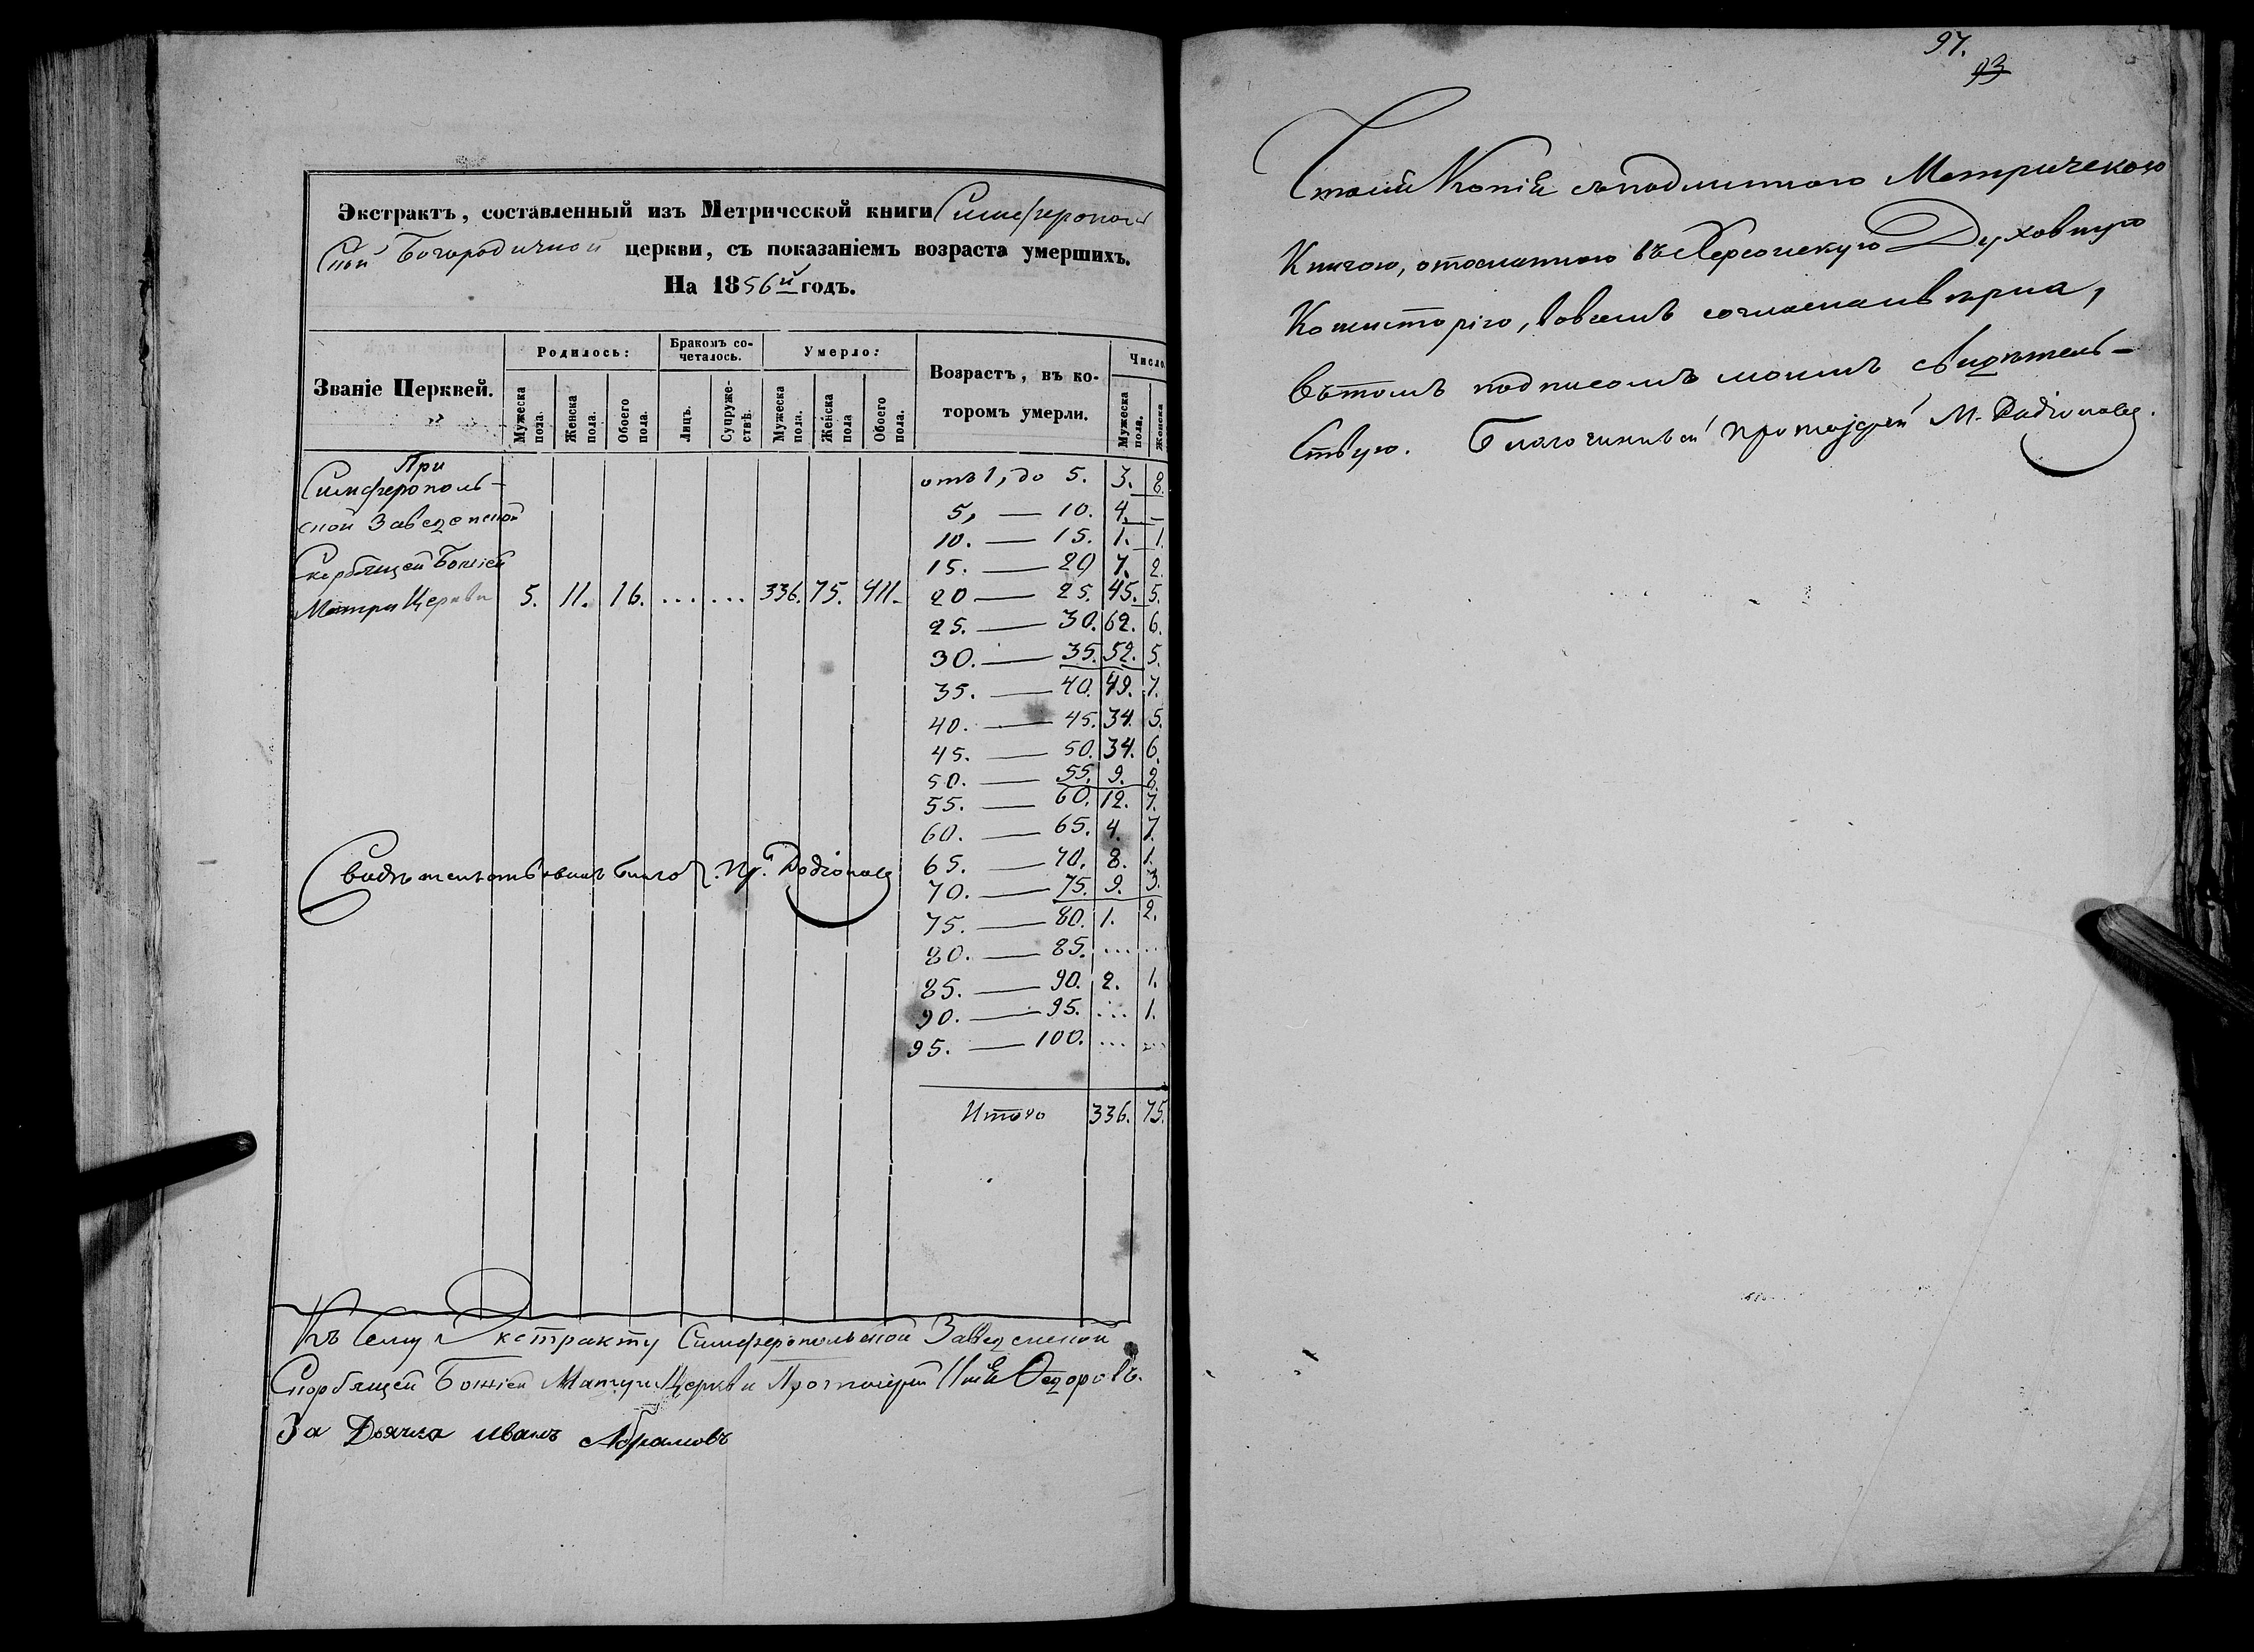 Экстрактъ, составленный изъ Метрической книги Симферополь
ской Богородичной церкви, съ показаніемъ возраста умершихъ.
На 1856й годъ.
Званіе Церквей.
Родилось:
Бракомъ со-
четалось.
Умерло:
Возрастъ, въ ко-
торомъ умерли.
Число
Мужеска пола.
Женска пола.
Обоего пола.
Лицъ.
Супруже-
ствъ.
Мужеска пола.
Женска пола
Обоего пола.
Мужеска пола.
Женска
При
Симферополь-
ской Заведенской
Скорбящей Божіей
Матери Церкви 5. 11. 16. ... ... 336. 75. 411.
отъ 1, до 5. 3. 8.
5, — 10. 4. —
10. — 15. 1. 1.
15. — 20 7. 2.
20 — 25. 45. 5.
25. — 30. 62. 6.
30. — 35. 52. 5.
35. — 40. 49. 7.
40. — 45. 34. 5.
45. — 50. 34. 6.
50. — 55. 9. 8.
55. — 60. 12. 7.
60. — 65. 4. 7.
65. — 70. 8. 1.
70. — 75. 9. 3.
75. — 80. 1. 2.
80. — 85. ... ...
85. — 90. 2. 1.
90. — 95. ... 1.
95. — 100. ... ...
Итого 336. 75.
Свидѣтельствовалъ Благ. Родіоновъ
Къ сему Экстракту Симферопольской Заведенской
Скорбящей Божіей Матери Церкви Протоіерей Ѳедоровъ.
За Дьячка иванъ Абрамовъ
97.
93
Сталй Копія съ подлинною Метрическою
Книгою, отосланною въ Херсонскую Духовную
Консисторію, во всемъ согласна и вѣрна,
въ томъ подписомъ моимъ свидѣтель-
ствую. Благочинный Протоіерей М. Родіоновъ.